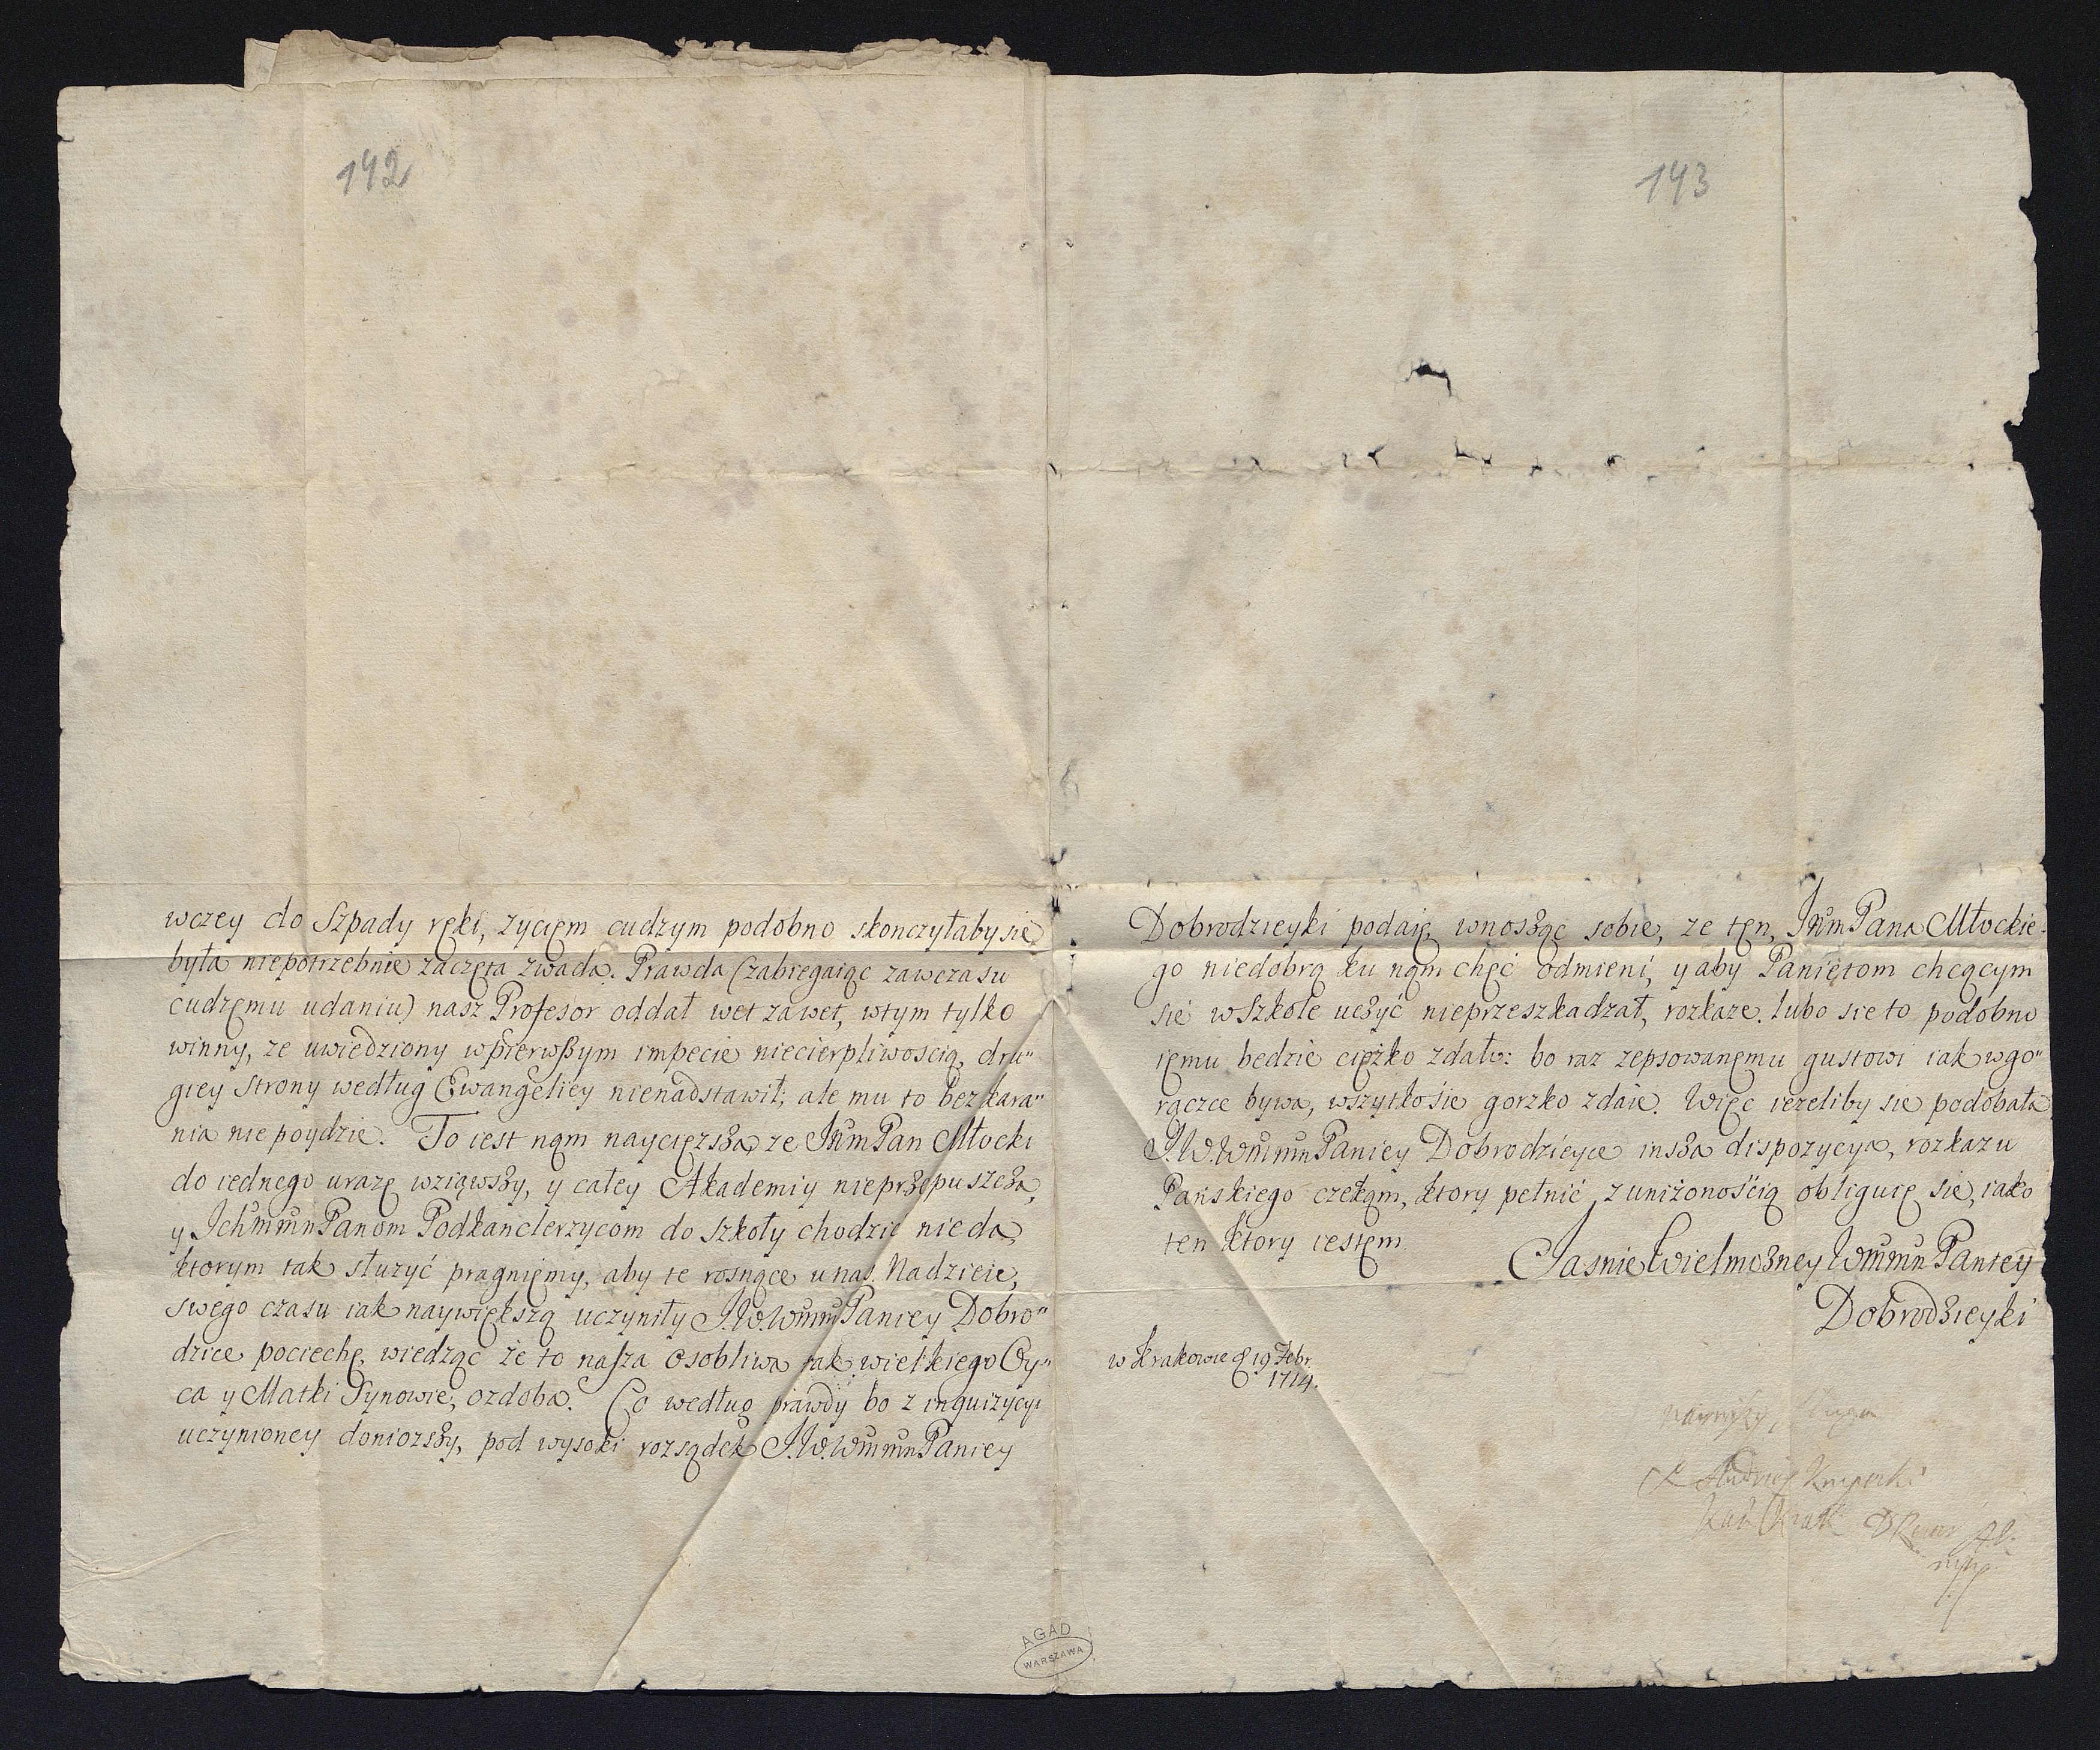 192
wczey do Szpady ręki, zyciem cudzym podobno skonczyłaby się
była niepotrzebnie zaczęta zwada. Prawda (zabiegaiąc zawczasu
cudzemu udaniu) nasz Profesor oddał wet zawet, wtym tylko
winny, ze uwiedziony wpierwßym impecie niecierpliwoscią, dru"
giey strony według Ewangeliey nienadstawił; ale mu to bez kara"
nia nie poydzie. To iest nąm naycięzsza, ze Jmm Pan Młocki
do iednego urazę wziąwszy, y całey Akademiy nieprzepuszcza,
y Ichmmn Panom Podkanclerzycom do szkoły chodzic nieda,
ktorym tak słuzyć pragnięmy, aby te rosnące unas Nadzieie,
swego czasu iak naywiększą uczyniły J.W.Wmmn Paniey Dobro"
dzice pociechę, wiedząc że to nasza osobliwa tak wielkiego Oy"
ca y Matki Synowie, ozdoba. Co według prawdy bo z inquizycyi
uczynioney doniozszy, pod wysoki rozsądek J.W.Wmmn Paniey
193
Dobrodzieyki podaię, wnosząc sobie, ze tęn, Jmm Pana Młockie-
go niedobrą ku nąm chęć odmieni, y aby Panięтom chcącym
się wSzkole uczyć nieprzeszkadzał, rozkaze. lubo sie to podobno
ięmu bedzie cięźko zdało: bo raz zepsowanęmu gustowi iak wgo"
rączce bywa, wszytko się gorzko zdaie. Więc iezeliby się podobała
J.W.Wmmn Paniey Dobrodzieyce insza dispozycya, rozkazu
Pańskiego czekąm, ktory pełnić z uniżonością obliguię się, iako
ten ktory iestęm
Jasnie Wielmozney Wmmn Paniey
Dobrodzieyki
w Krakowie d 19 Febr.
1714.
nayniższy sługa
X Andrzey
Kan Krak
AGAD
WARSZAWA